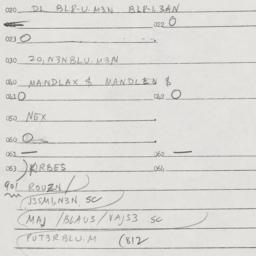 020 DL BLP-U.M3N BLP-L3AN
022 O
023 O
030 20,N3NBLU.M3N
040 MANDLAX & MANDLEN &
041 O 042 O
050 NEX
060 O
061 — 062 —
063 XIRBES 064
901 ROUZN/
(JSSMI,N3N, SC
MAJ /BLAUS/ VAJS3 SC
PUT3RBLU.M (812